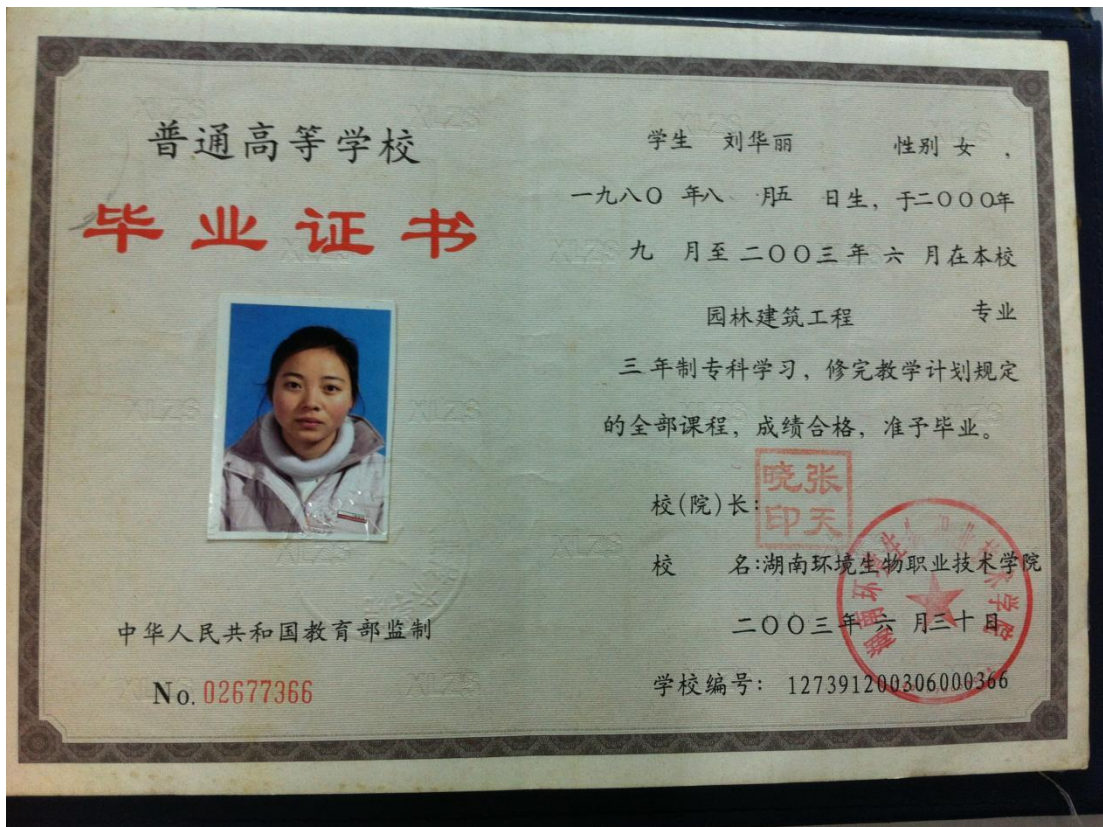 普通高等学校
毕业证书
中华人民共和国教育部监制
No. 02677366
学生 刘华丽 性别 女 ,
一九八〇 年八 月五 日生, 于二〇〇〇年
九 月至 二〇〇三 年 六 月在本校
园林建筑工程 专业
三 年制专科学习, 修完教学计划规定
的全部课程, 成绩合格, 准予毕业。
校(院)长:
张天晓印
校 名:湖南环境生物职业技术学院
二〇〇三年 六 月三十日
学校编号: 127391200306000366
湖南环境生物职业技术学院
XLZS